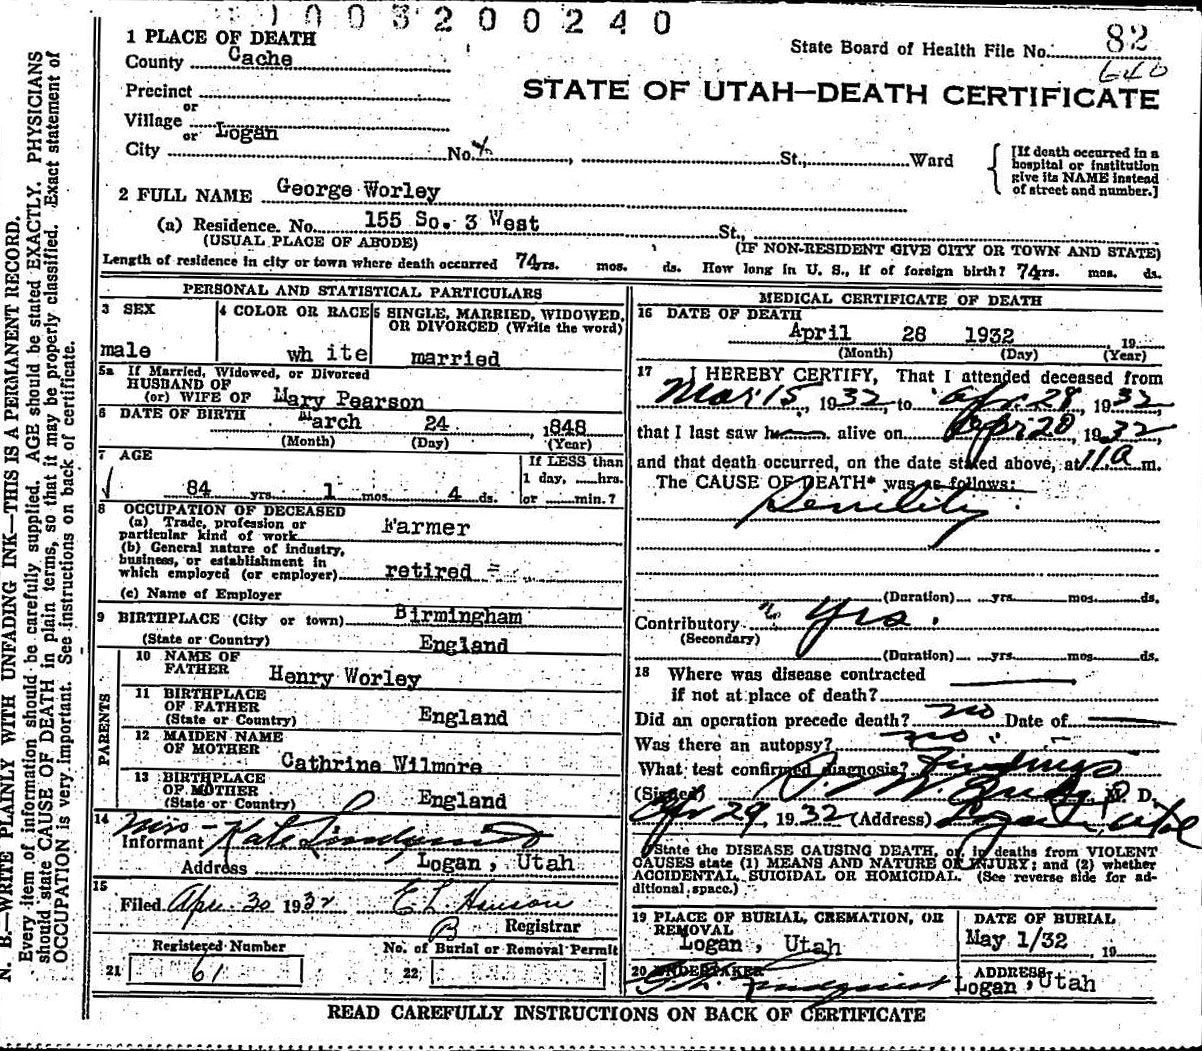 1003200240
1 PLACE OF DEATH
State Board of Health File No. 82
County Cache
640
Precinct
STATE OF UTAH—DEATH CERTIFICATE
or
Village
or Logan
City No. St., Ward
[If death occurred in a
hospital or institution
give its NAME instead
of street and number.]
2 FULL NAME George Worley
(a) Residence. No. 155 So. 3 West St.,
(USUAL PLACE OF ABODE) (IF NON-RESIDENT GIVE CITY OR TOWN AND STATE)
Length of residence in city or town where death occurred 74 yrs. mos. ds. How long in U. S., if of foreign birth? 74 yrs. mos. ds.
PERSONAL AND STATISTICAL PARTICULARS
3 SEX 4 COLOR OR RACE 5 SINGLE, MARRIED, WIDOWED,
OR DIVORCED (Write the word)
male wh ite married
5a If Married, Widowed, or Divorced
HUSBAND OF
(or) WIFE OF Mary Pearson
6 DATE OF BIRTH March 24 1848
(Month) (Day) (Year)
7 AGE If LESS than
1 day, ......hrs.
84 yrs. 1 mos. 4 ds. or ......min.?
8 OCCUPATION OF DECEASED
(a) Trade, profession or
particular kind of work Farmer
(b) General nature of industry,
business, or establishment in
which employed (or employer) retired
(c) Name of Employer
9 BIRTHPLACE (City or town) Birmingham
(State or Country) England
PARENTS
10 NAME OF
FATHER Henry Worley
11 BIRTHPLACE
OF FATHER
(State or Country) England
12 MAIDEN NAME
OF MOTHER Cathrine Wilmore
13 BIRTHPLACE
OF MOTHER
(State or Country) England
14 Mrs - Kate Lindquist
Informant
Address Logan, Utah
15
Filed Apr. 30 1932 E L Hanson
Registrar
Registered Number No. of Burial or Removal Permit
21 61 22
MEDICAL CERTIFICATE OF DEATH
16 DATE OF DEATH
April 28 1932, 19
(Month) (Day) (Year)
17 I HEREBY CERTIFY, That I attended deceased from
Mar 15, 1932, to Apr. 28, 1932,
that I last saw h alive on Apr 28, 1932,
and that death occurred, on the date stated above, at 11 a m.
The CAUSE OF DEATH* was as follows:
Senility
(Duration) yrs. mos. ds.
Contributory yrs.
(Secondary)
(Duration) yrs. mos. ds.
18 Where was disease contracted
if not at place of death?
Did an operation precede death? no Date of
Was there an autopsy? no
What test confirmed diagnosis? Findings
(Signed) M. D.
Apr 29, 1932 (Address) Logan, Utah
*State the DISEASE CAUSING DEATH, or, in deaths from VIOLENT
CAUSES state (1) MEANS AND NATURE OF INJURY; and (2) whether
ACCIDENTAL, SUICIDAL OR HOMICIDAL. (See reverse side for ad-
ditional space.)
19 PLACE OF BURIAL, CREMATION, OR DATE OF BURIAL
REMOVAL
Logan, Utah May 1/32, 19
20 UNDERTAKER ADDRESS
Lindquist Logan, Utah
READ CAREFULLY INSTRUCTIONS ON BACK OF CERTIFICATE
N. B.—WRITE PLAINLY WITH UNFADING INK—THIS IS A PERMANENT RECORD.
Every item of information should be carefully supplied. AGE should be stated EXACTLY. PHYSICIANS
should state CAUSE OF DEATH in plain terms, so that it may be properly classified. Exact statement of
OCCUPATION is very important. See instructions on back of certificate.